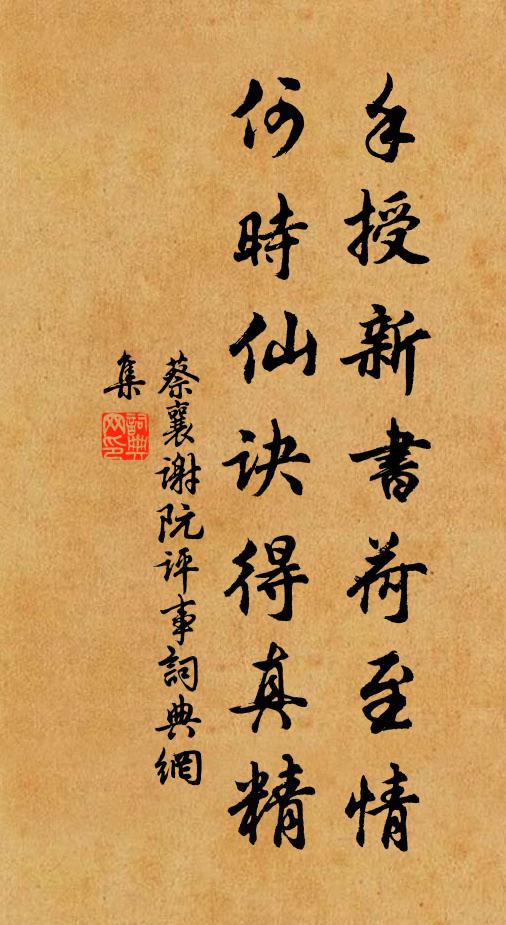 手授新書荷至情
何時仙訣得真精
蔡襄謝阮评事詞典網
集
詞典
网印